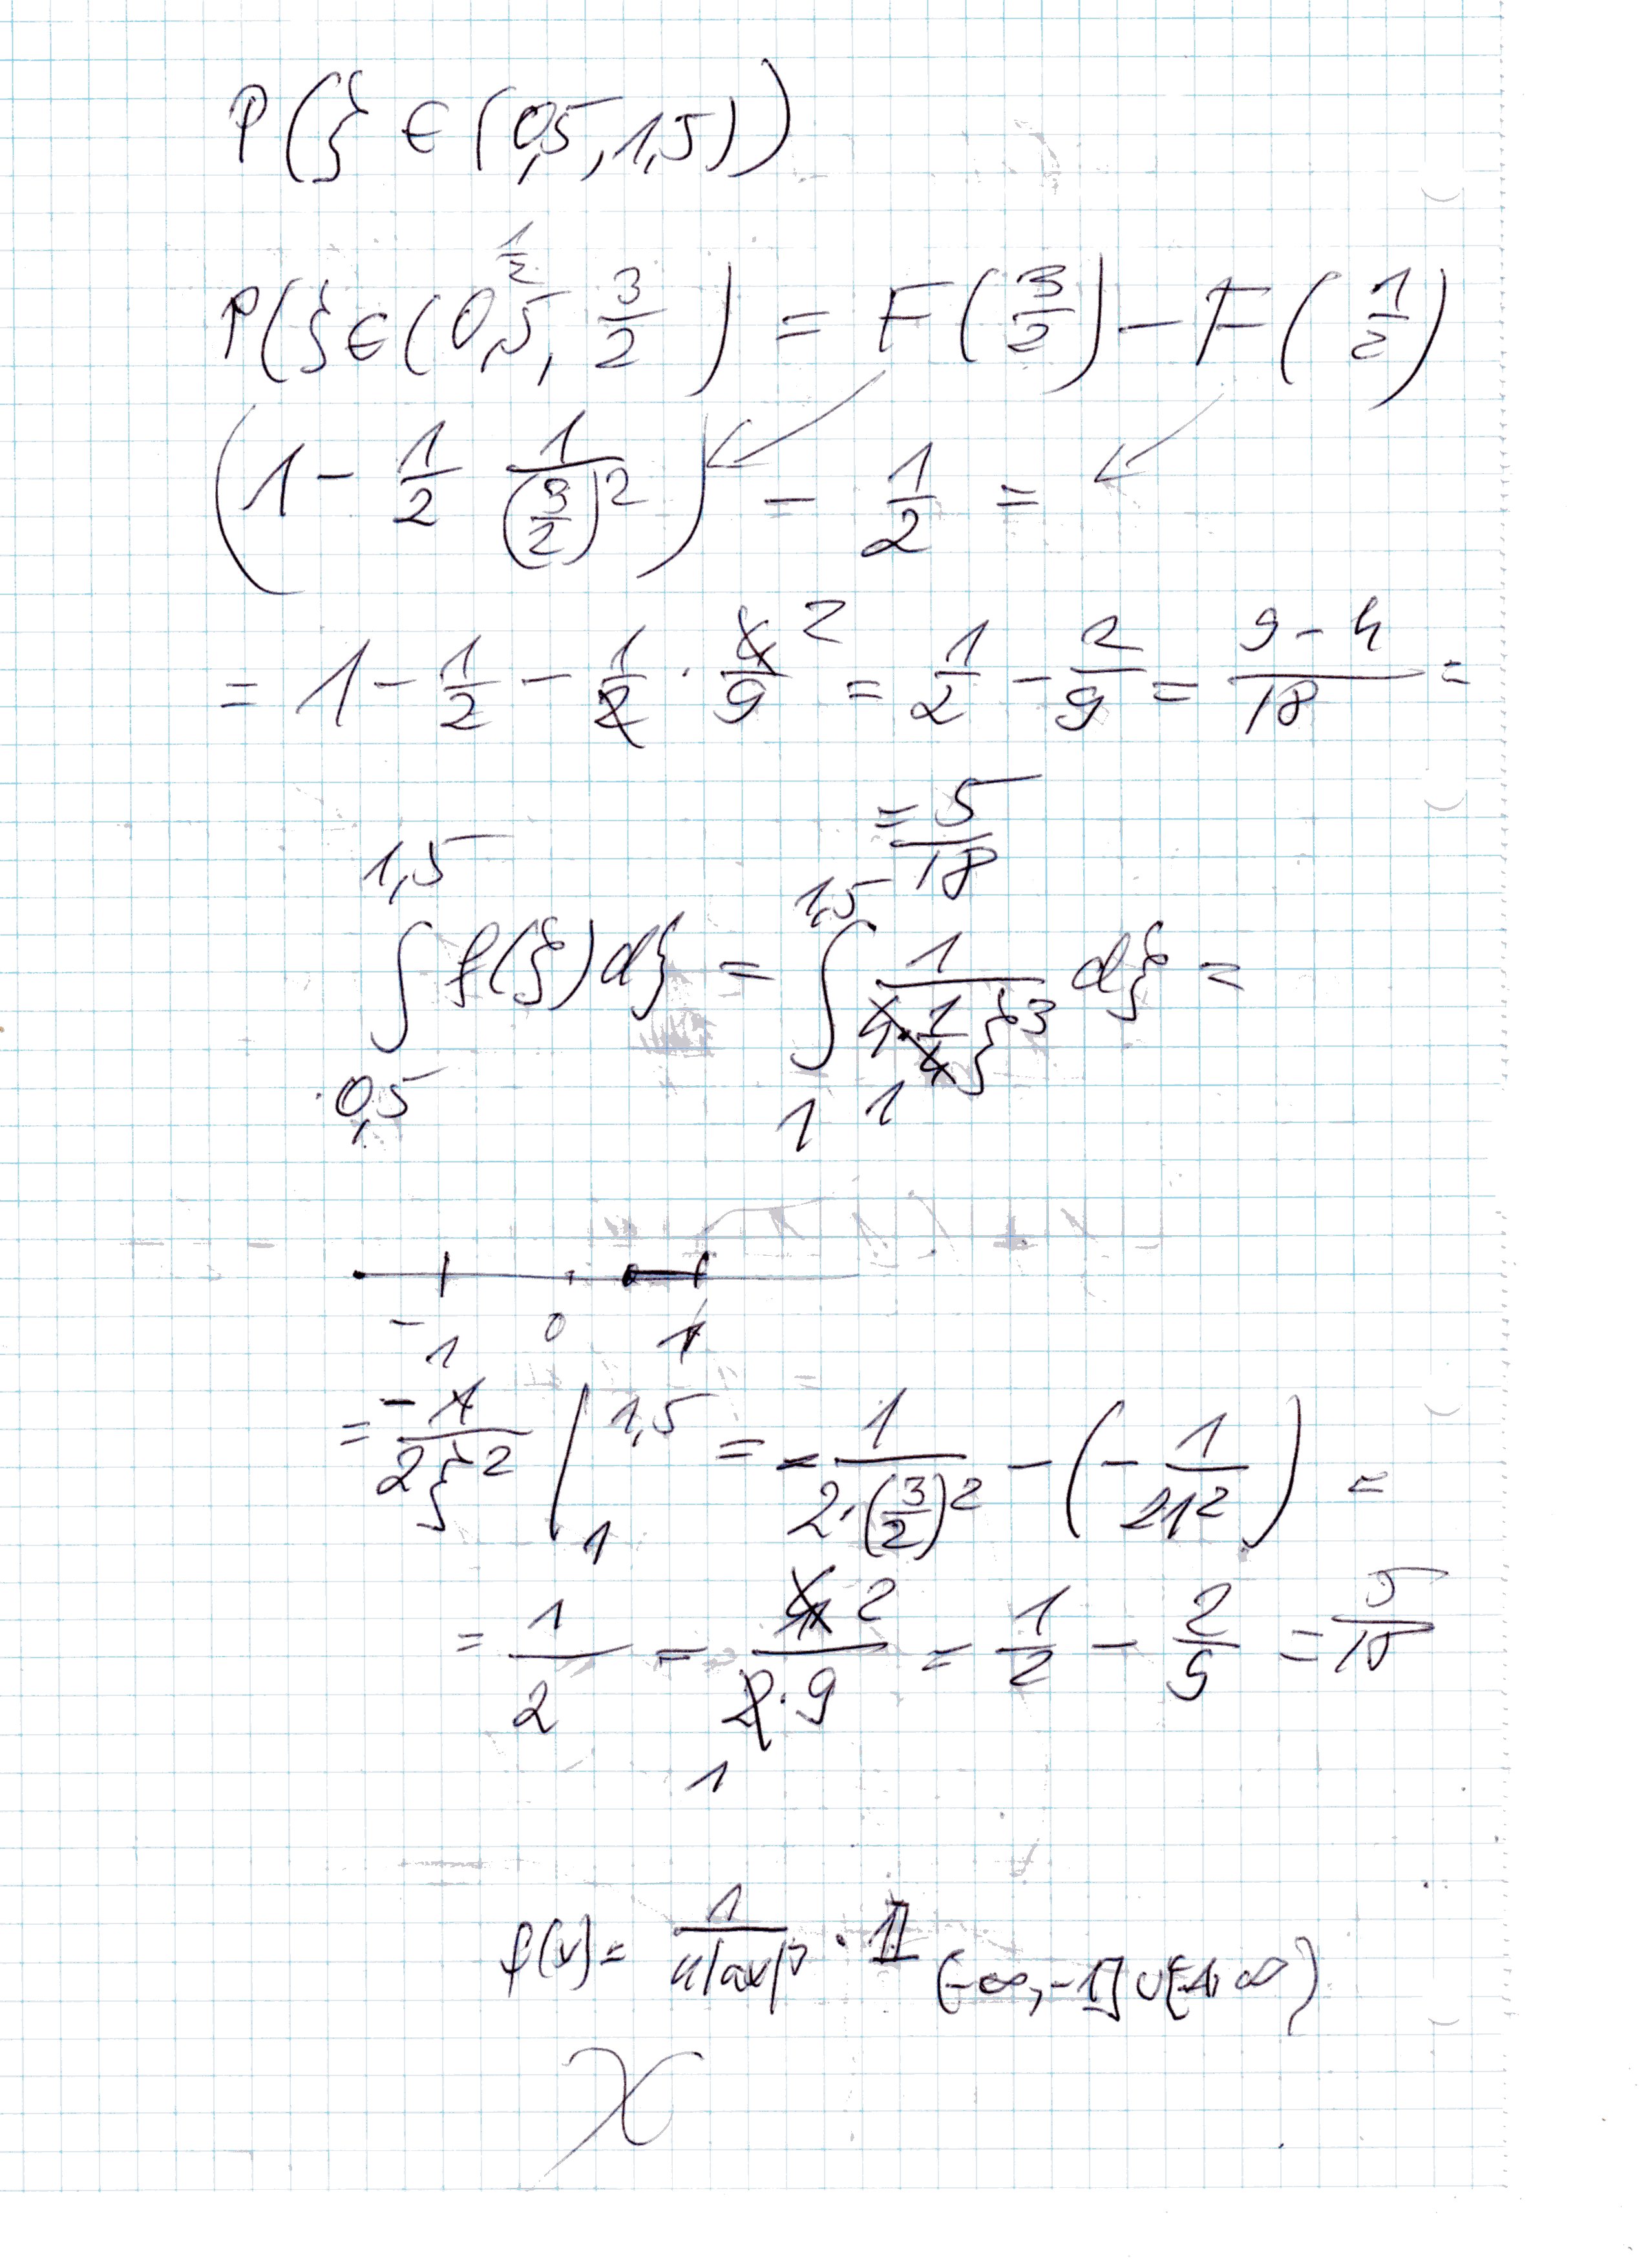 P(ξ ∈ (0,5, 1,5))
1/2
P(ξ ∈ (0,5, 3/2) = F(3/2) − F(1/2)
(1 − 1/2 1/(3/2)²) − 1/2 =
= 1 − 1/2 − 1/2 · 4/9 2 = 1/2 − 2/9 = 9−4/18 =
= 5/18
∫_{0,5}^{1,5} f(ξ)dξ = ∫_{1}^{1,5} 1/(4·1/4 ξ³) dξ =
1
−1 0 1
= −1/(2ξ²) |_{1}^{1,5} = −1/(2·(3/2)²) − (−1/(2 1²)) =
= 1/2 − 4 2/(2·9) = 1/2 − 2/9 = 5/18
1
f(x) = 1/(4|ax|³) · 𝟙 (−∞, −1] ∪ [1, ∞)
χ